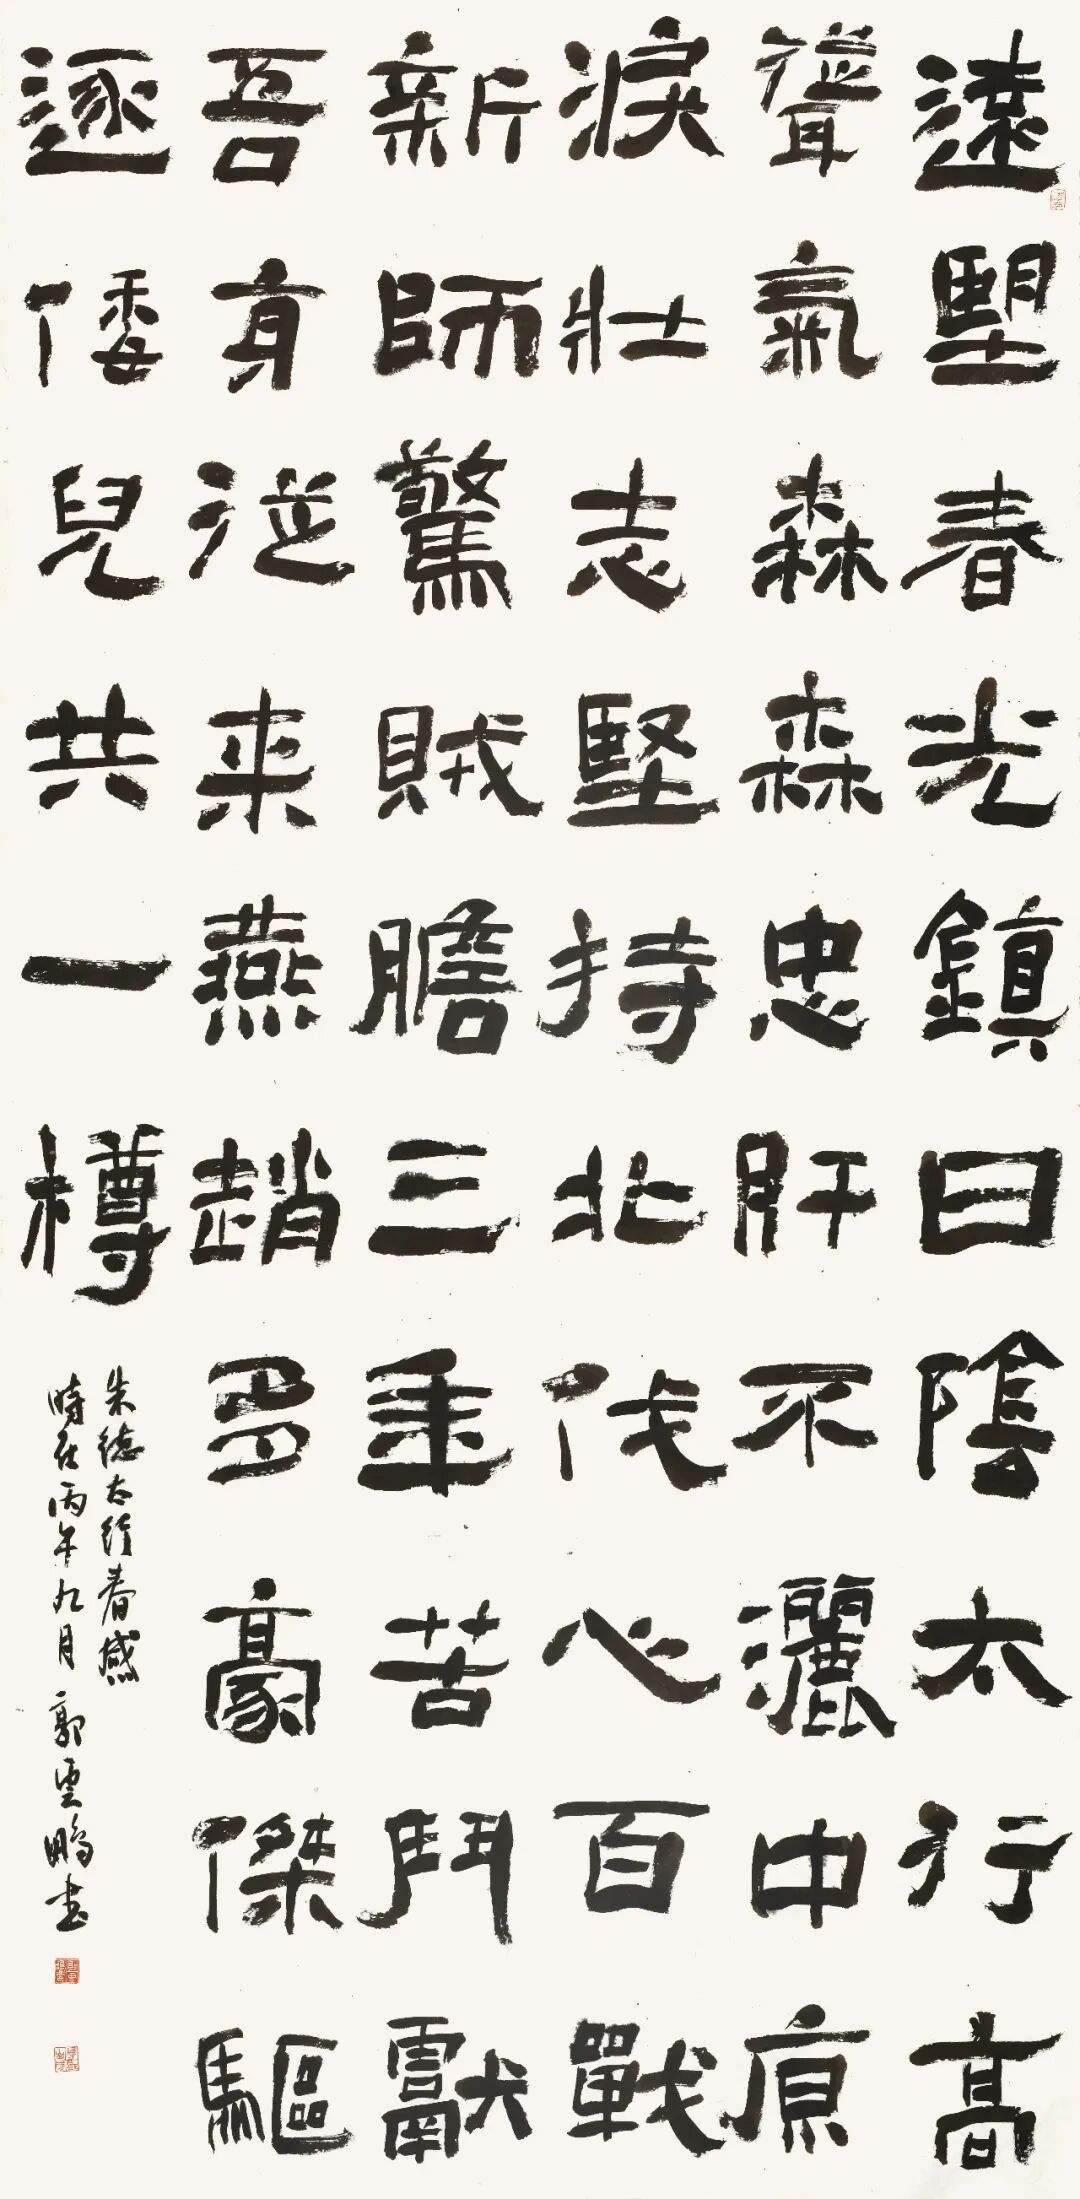 遠望春光鎮日陰太行高
聳氣森森忠肝不灑中原
淚壯志堅持北伐心百戰
新師驚賊膽三年苦鬥獻
吾身從来燕趙多豪傑驅
逐倭兒共一樽
朱德太行春感
時在丙午九月郭雲鵬書